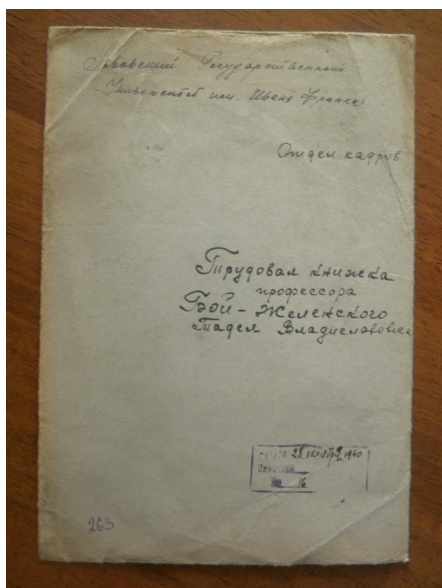 Львовский Государственный
Университет им. Ивана Франка
Отдел кадров
Трудовая книжка
профессора
Бой-Желенского
Тадея Владиславовича
28 октября 1940
№ 16
263